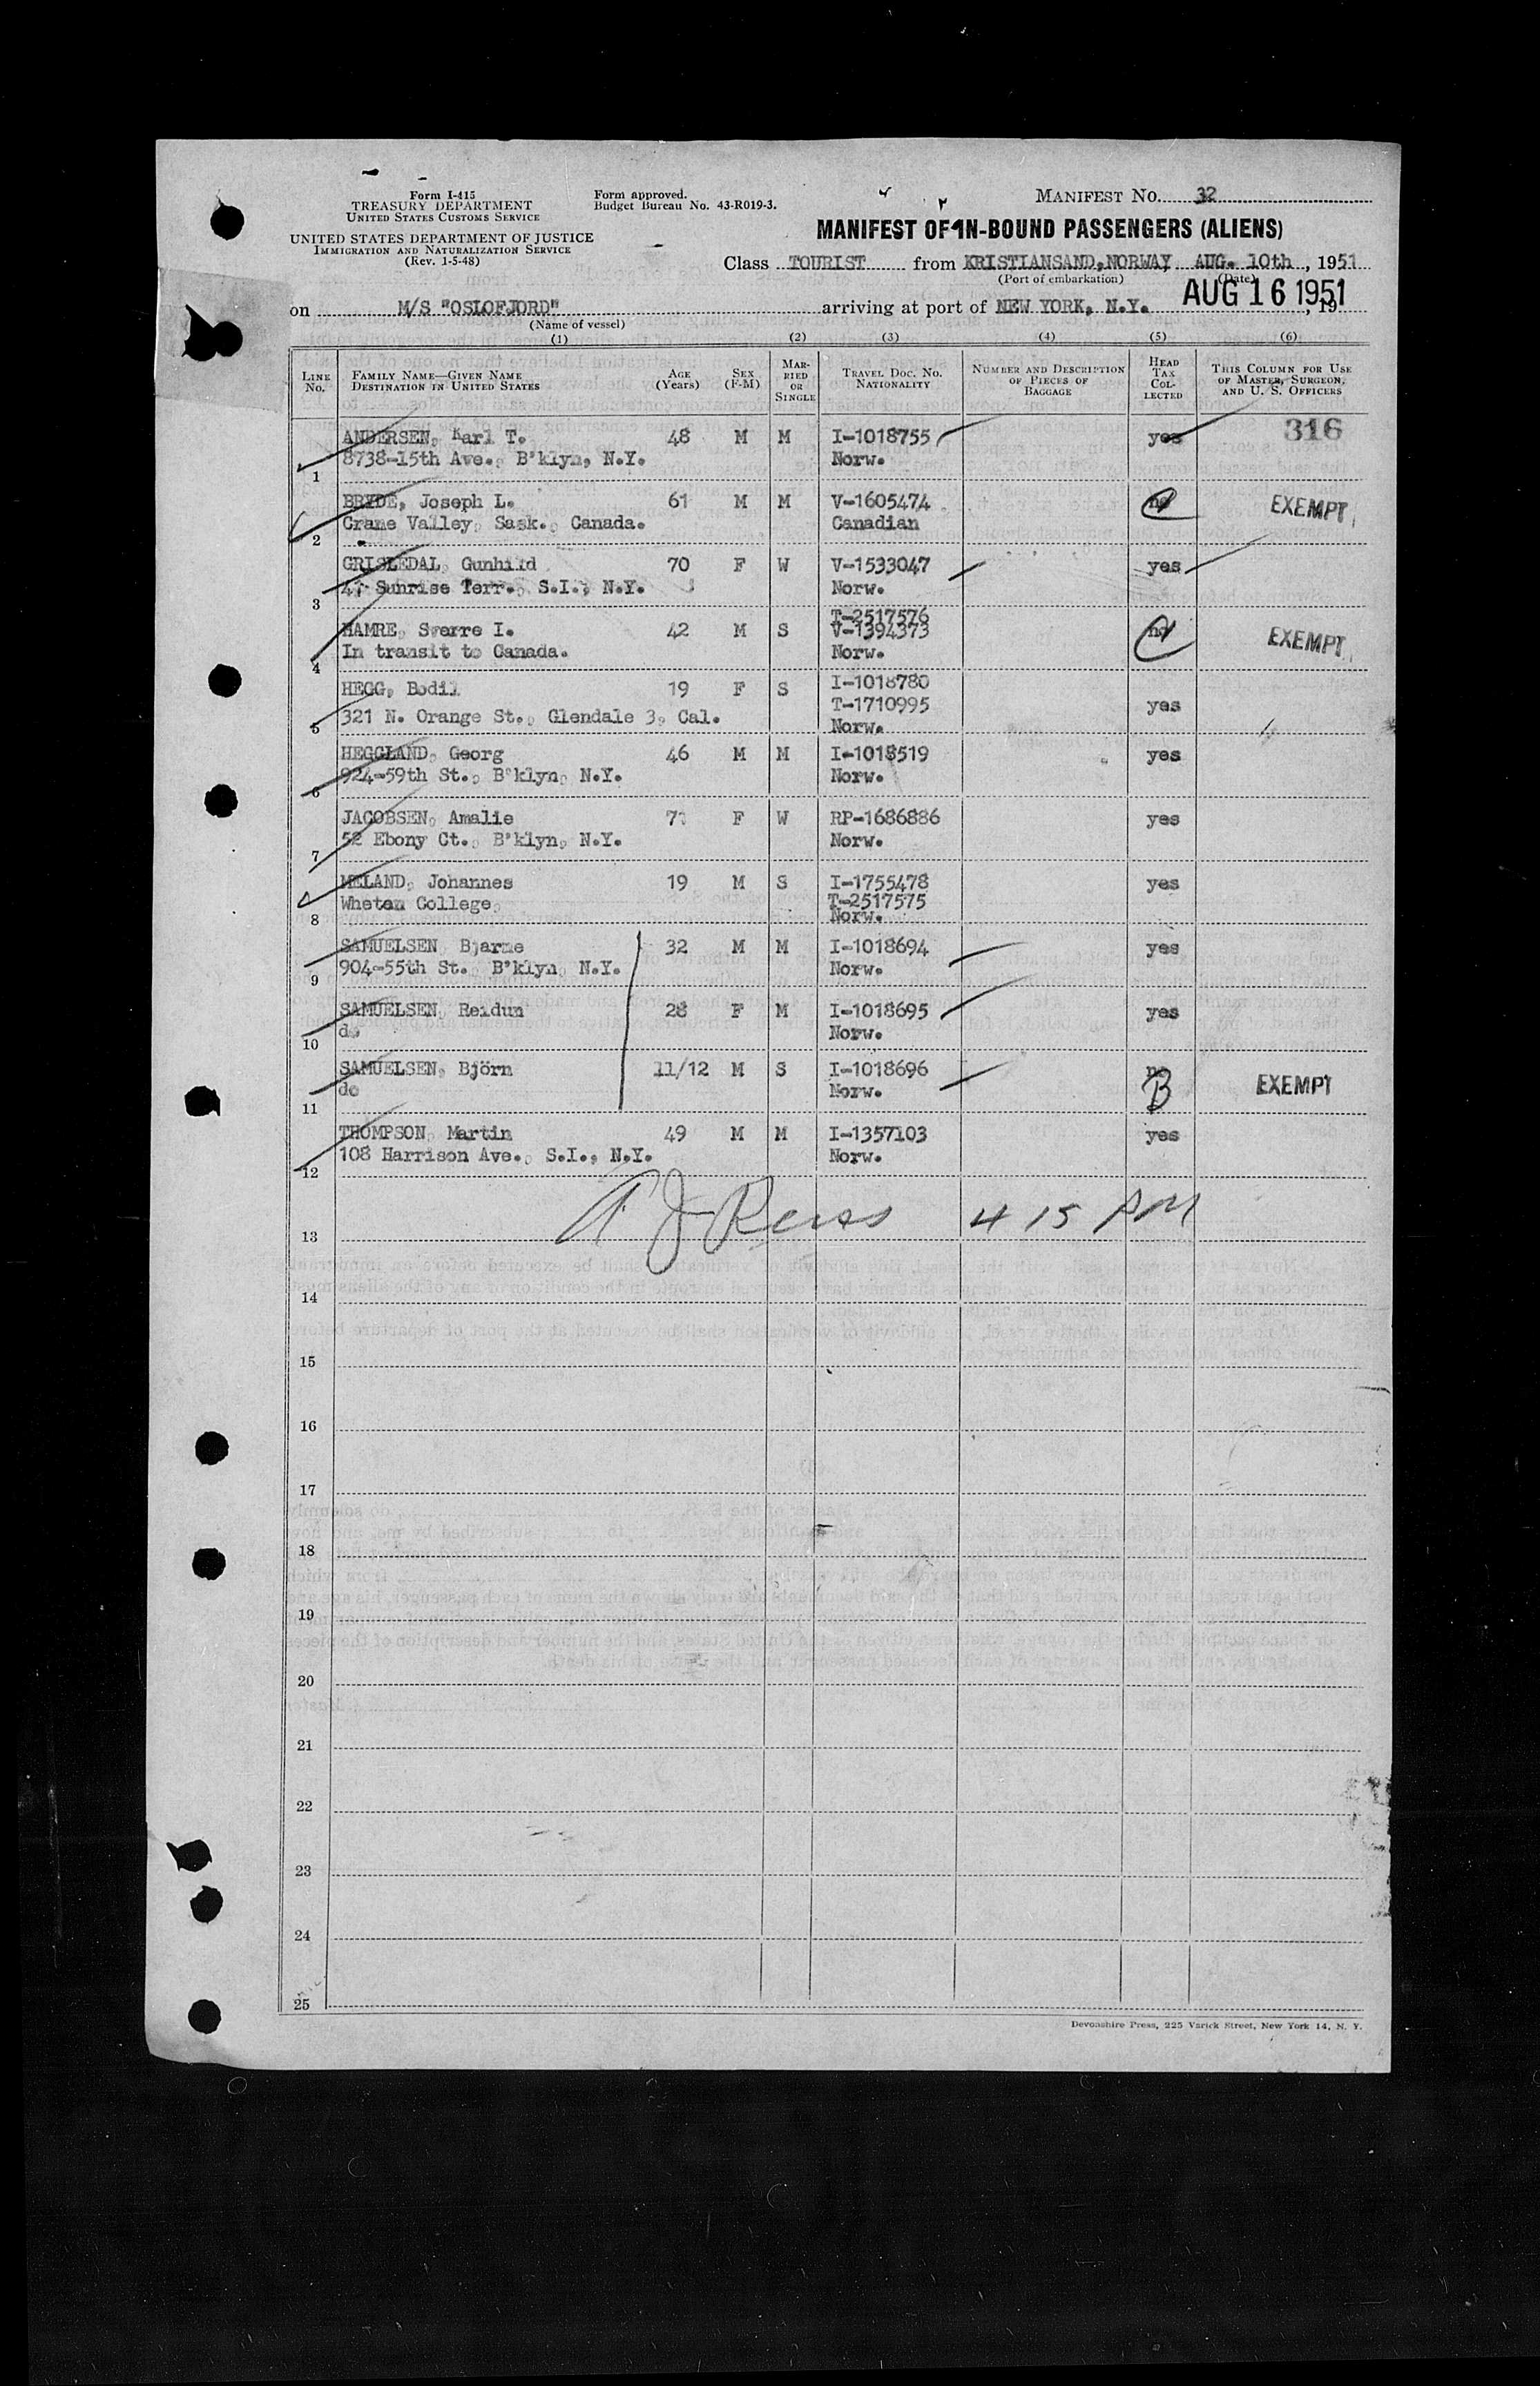 Form I-415
TREASURY DEPARTMENT
UNITED STATES CUSTOMS SERVICE
UNITED STATES DEPARTMENT OF JUSTICE
IMMIGRATION AND NATURALIZATION SERVICE
(Rev. 1-5-48)
Form approved.
Budget Bureau No. 43-R019-3.
MANIFEST NO. 32
MANIFEST OF IN-BOUND PASSENGERS (ALIENS)
Class TOURIST from KRISTIANSAND, NORWAY AUG. 10th, 1951
(Port of embarkation) (Date)
on M/S "OSLOFJORD" arriving at port of NEW YORK, N.Y. AUG 16 1951, 19
(Name of vessel)
(1) (2) (3) (4) (5) (6)
LINE NO. FAMILY NAME—GIVEN NAME DESTINATION IN UNITED STATES AGE (Years) SEX (F-M) MARRIED OR SINGLE TRAVEL DOC. NO. NATIONALITY NUMBER AND DESCRIPTION OF PIECES OF BAGGAGE HEAD TAX COLLECTED THIS COLUMN FOR USE OF MASTER, SURGEON, AND U. S. OFFICERS
ANDERSEN, Karl T. 48 M M I-1018755 yes 316
1 8738-15th Ave., B'klyn, N.Y. Norw.
BRYDE, Joseph L. 61 M M V-1605474 no EXEMPT
2 Crane Valley, Sask., Canada. Canadian
GRISLEDAL, Gunhild 70 F W V-1533047 yes
3 Sunrise Terr., S.I., N.Y. Norw.
T-2517576
HAMRE, Sverre I. 42 M S V-1394373 no EXEMPT
4 In transit to Canada. Norw.
HEGG, Bodil 19 F S I-1018780
T-1710995 yes
5 321 N. Orange St., Glendale 3, Cal. Norw.
HEGGLAND, Georg 46 M M I-1018519 yes
6 924-59th St., B'klyn, N.Y. Norw.
JACOBSEN, Amalie F W RP-1686886 yes
7 52 Ebony Ct., B'klyn, N.Y. Norw.
MELAND, Johannes 19 M S I-1755478 yes
Wheten College, T-2517575
8 Norw.
SAMUELSEN, Bjarne 32 M M I-1018694 yes
9 904-55th St., B'klyn, N.Y. Norw.
SAMUELSEN, Reidun 28 F M I-1018695 yes
10 do. Norw.
SAMUELSEN, Björn 11/12 M S I-1018696 no B EXEMPT
11 do Norw.
THOMPSON, Martin 49 M M I-1357103 yes
12 108 Harrison Ave., S.I., N.Y. Norw.
13 4 15 PM
14
15
16
17
18
19
20
21
22
23
24
25
Devonshire Press, 225 Varick Street, New York 14, N. Y.